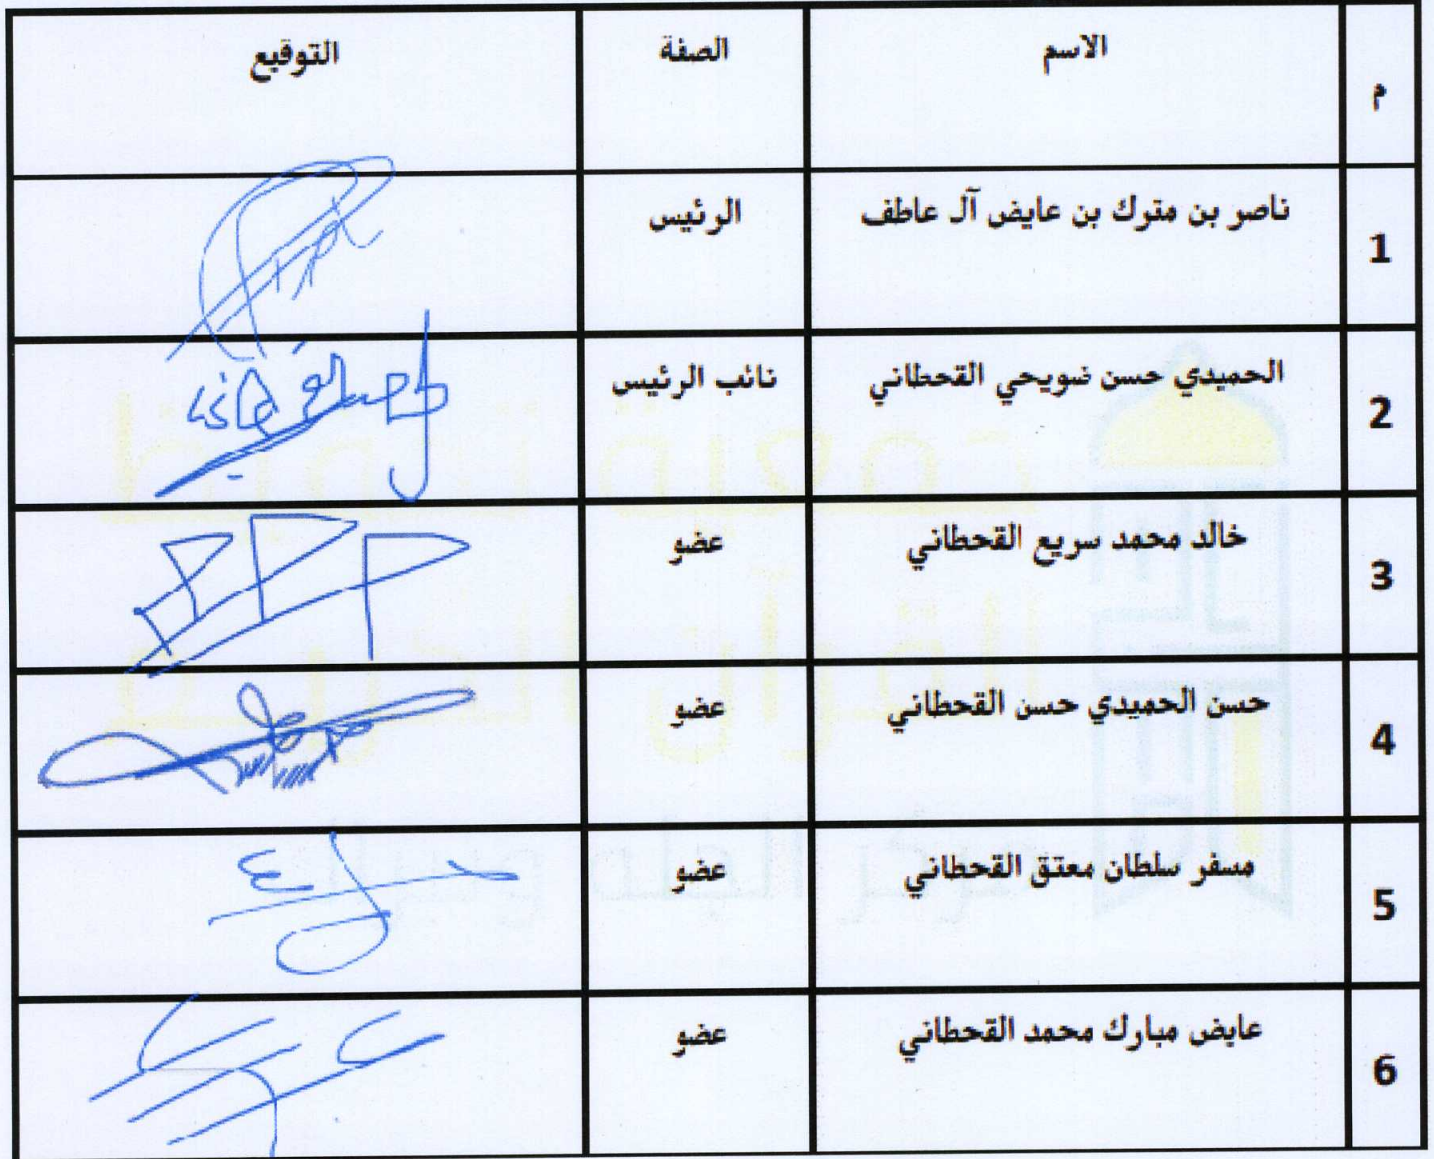 م الاسم الصفة التوقيع
1 ناصر بن مترك بن عايض آل عاطف الرئيس
2 الحميدي حسن ضويحي القحطاني نائب الرئيس
3 خالد محمد سريع القحطاني عضو
4 حسن الحميدي حسن القحطاني عضو
5 مسفر سلطان معتق القحطاني عضو
6 عايض مبارك محمد القحطاني عضو